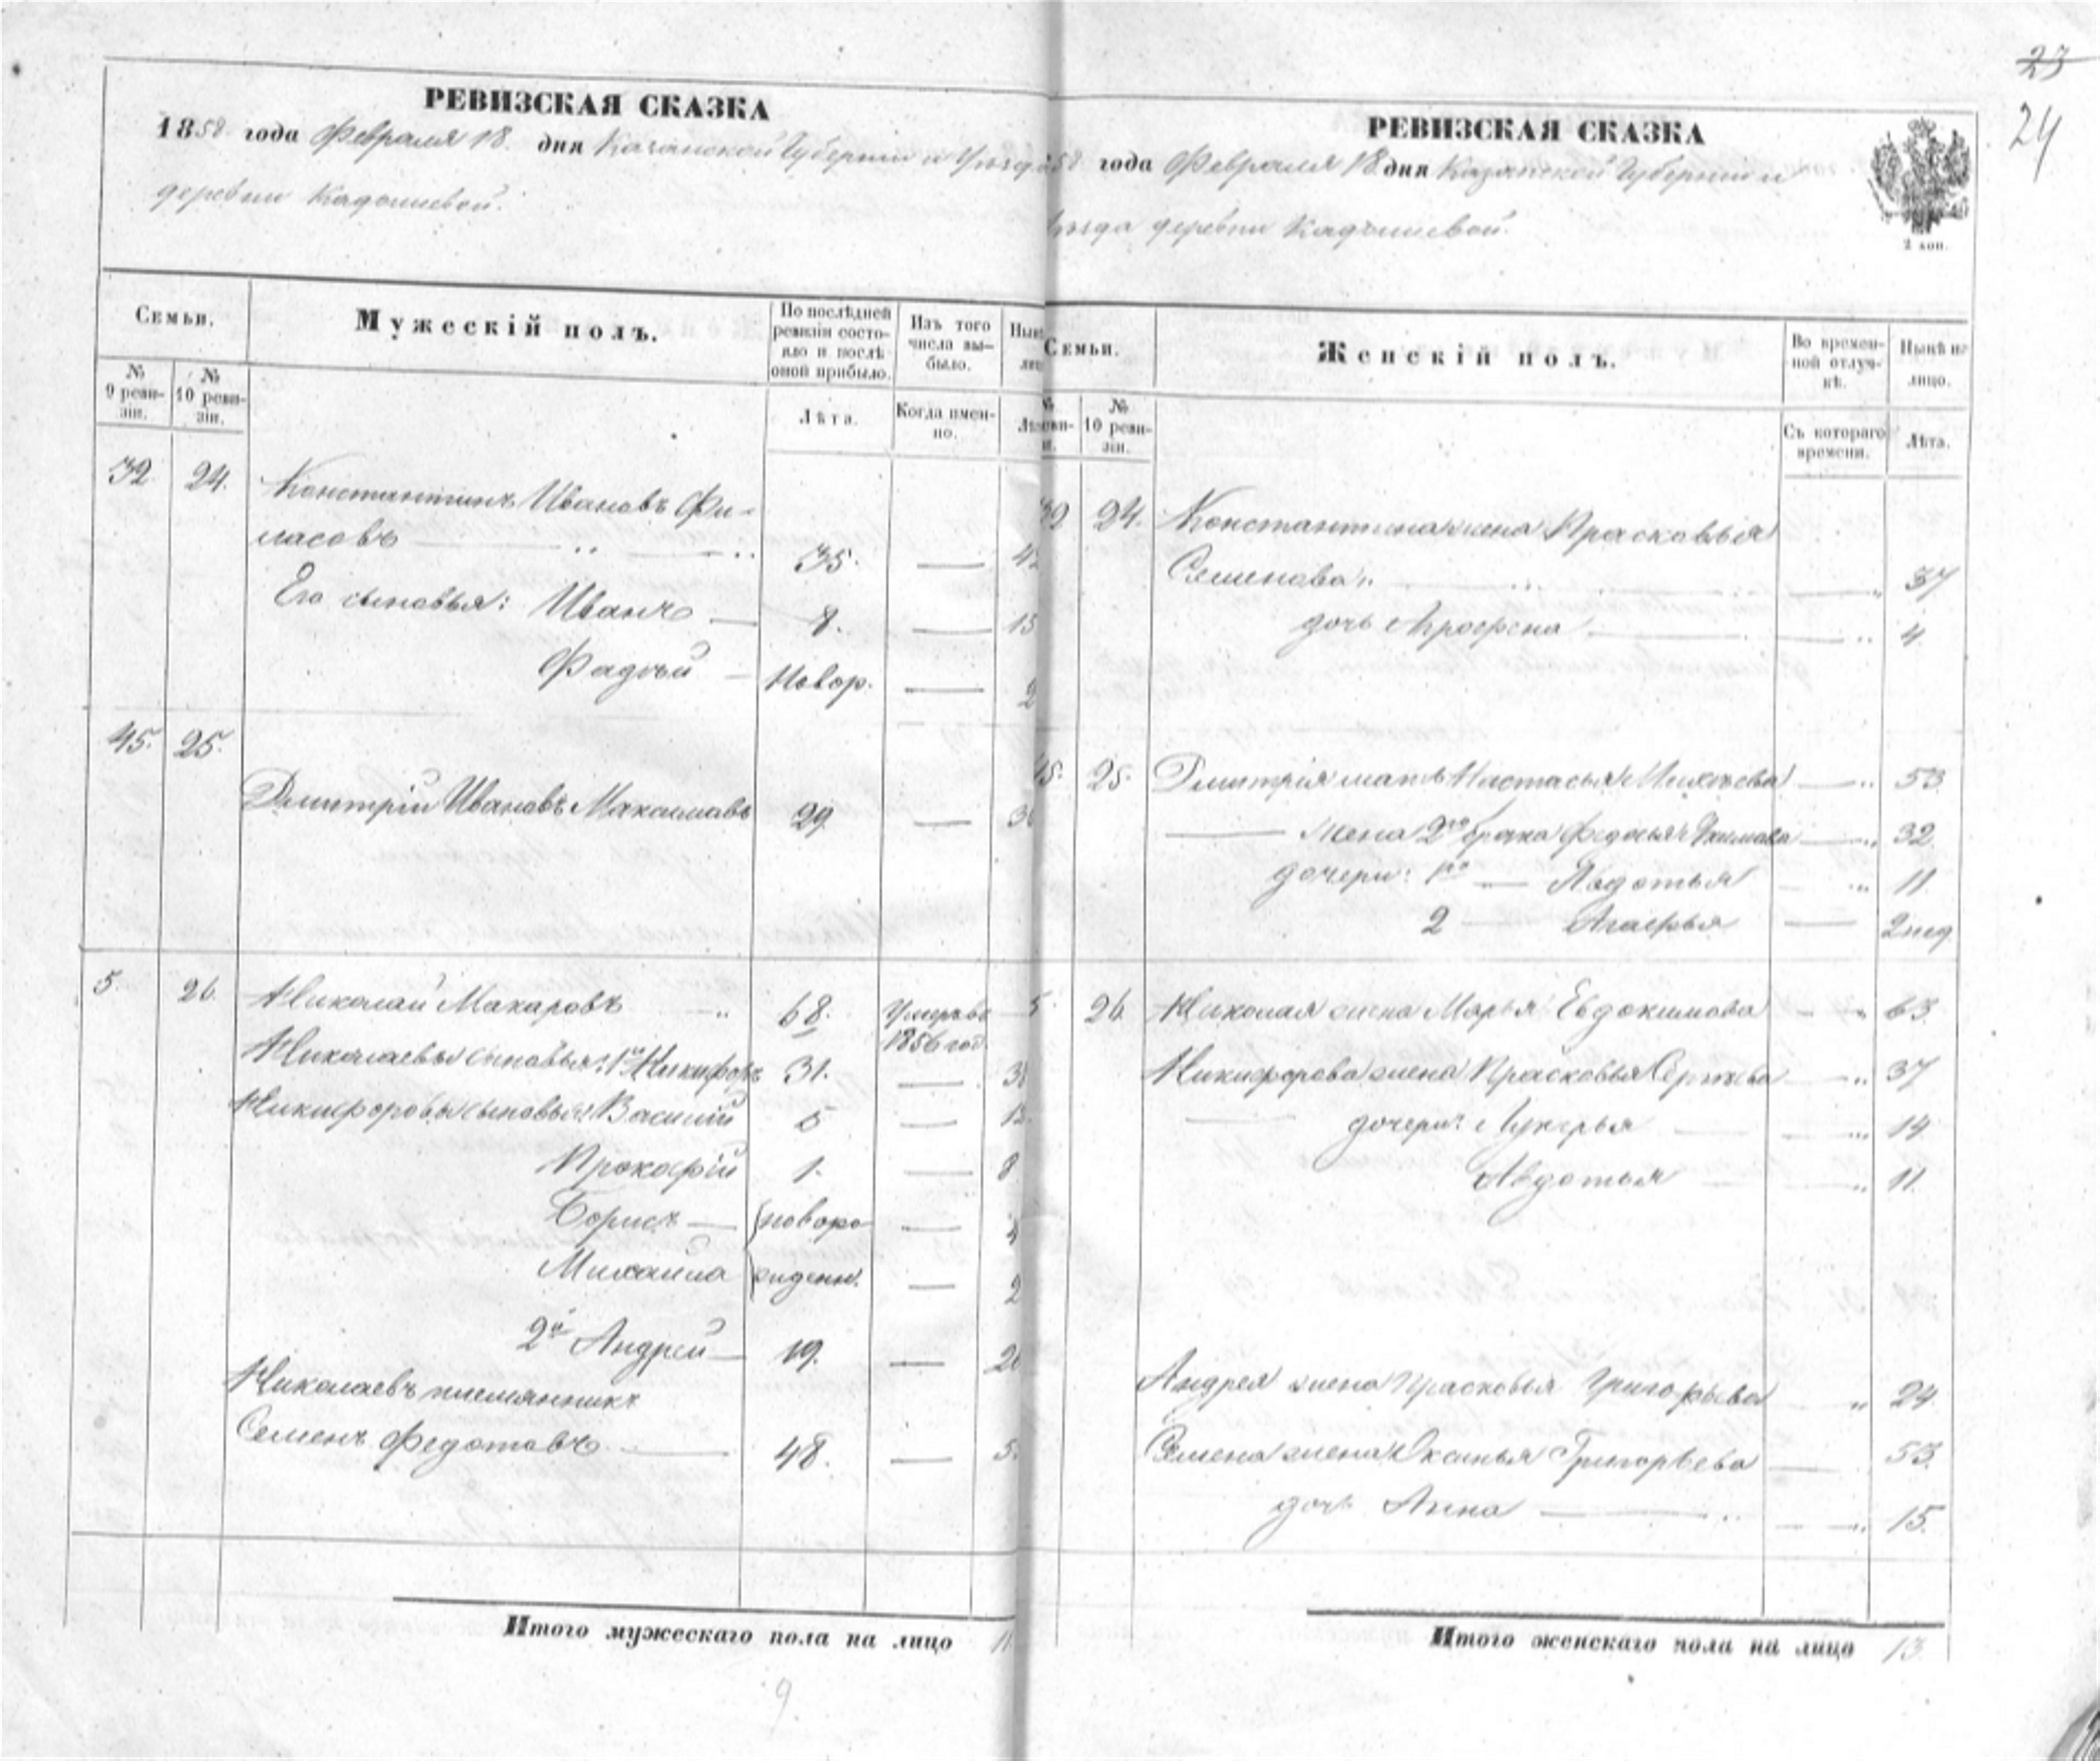 23
24
РЕВИЗСКАЯ СКАЗКА
1858 года Февраля 18. дня Казанской Губернии и Уезд
деревни Кадышевой.
Семьи.
Мужескій полъ.
По послѣдней ревизіи состояло и послѣ оной прибыло.
Изъ того числа выбыло.
№ 9 ревизіи.
№ 10 ревизіи.
Лѣта.
Когда именно.
32. 24. Константинъ Ивановъ Фи-
ласовъ 35.
Его сыновья: Иванъ 8. 15
Фадѣй Новор. 2
45. 25.
Дмитрій Ивановъ Максимовъ 29.
5. 26. Николай Макаровъ 68. Умеръ въ
1856 год.
Николаевы сыновья: 1й Никифоръ 31.
Никифоровы сыновья: Василій 5
Прокофій 1. 8
Борисъ новоро-
Михаила жденн. 2
2й Андрей 19.
Николаевъ племянникъ
Семенъ Федотовъ 48.
Итого мужескаго пола на лицо
9.
РЕВИЗСКАЯ СКАЗКА
58 года Февраля 18 дня Казанской Губерніи и
уѣзда деревни Кадышевой.
2 коп.
Семьи.
Женскій полъ.
Во временной отлучкѣ.
Нынѣ на лицо.
№ 10 ревизіи.
Съ котораго времени.
Лѣта.
32 24. Константина жена Прасковья
Семенова 37
дочь Агрофена 4
45. 25. Дмитрія мать Настасья Михѣева 53
жена 2го брака Федосья Екимова 32
дочери: 1я Авдотья 11
2 Агафья 2 нед
5. 26. Николая жена Марья Евдокимова 63.
Никифорова жена Прасковья Сергѣева 37
дочери: Лукерья 14
Авдотья 11.
Андрея жена Прасковья Григорьева 24
Семена жена Оксинья Григорьева 53.
дочь Анна 15.
Итого женскаго пола на лицо 13